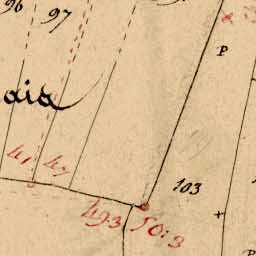 96
97
P
aia
41 47
103
493 50:3
P